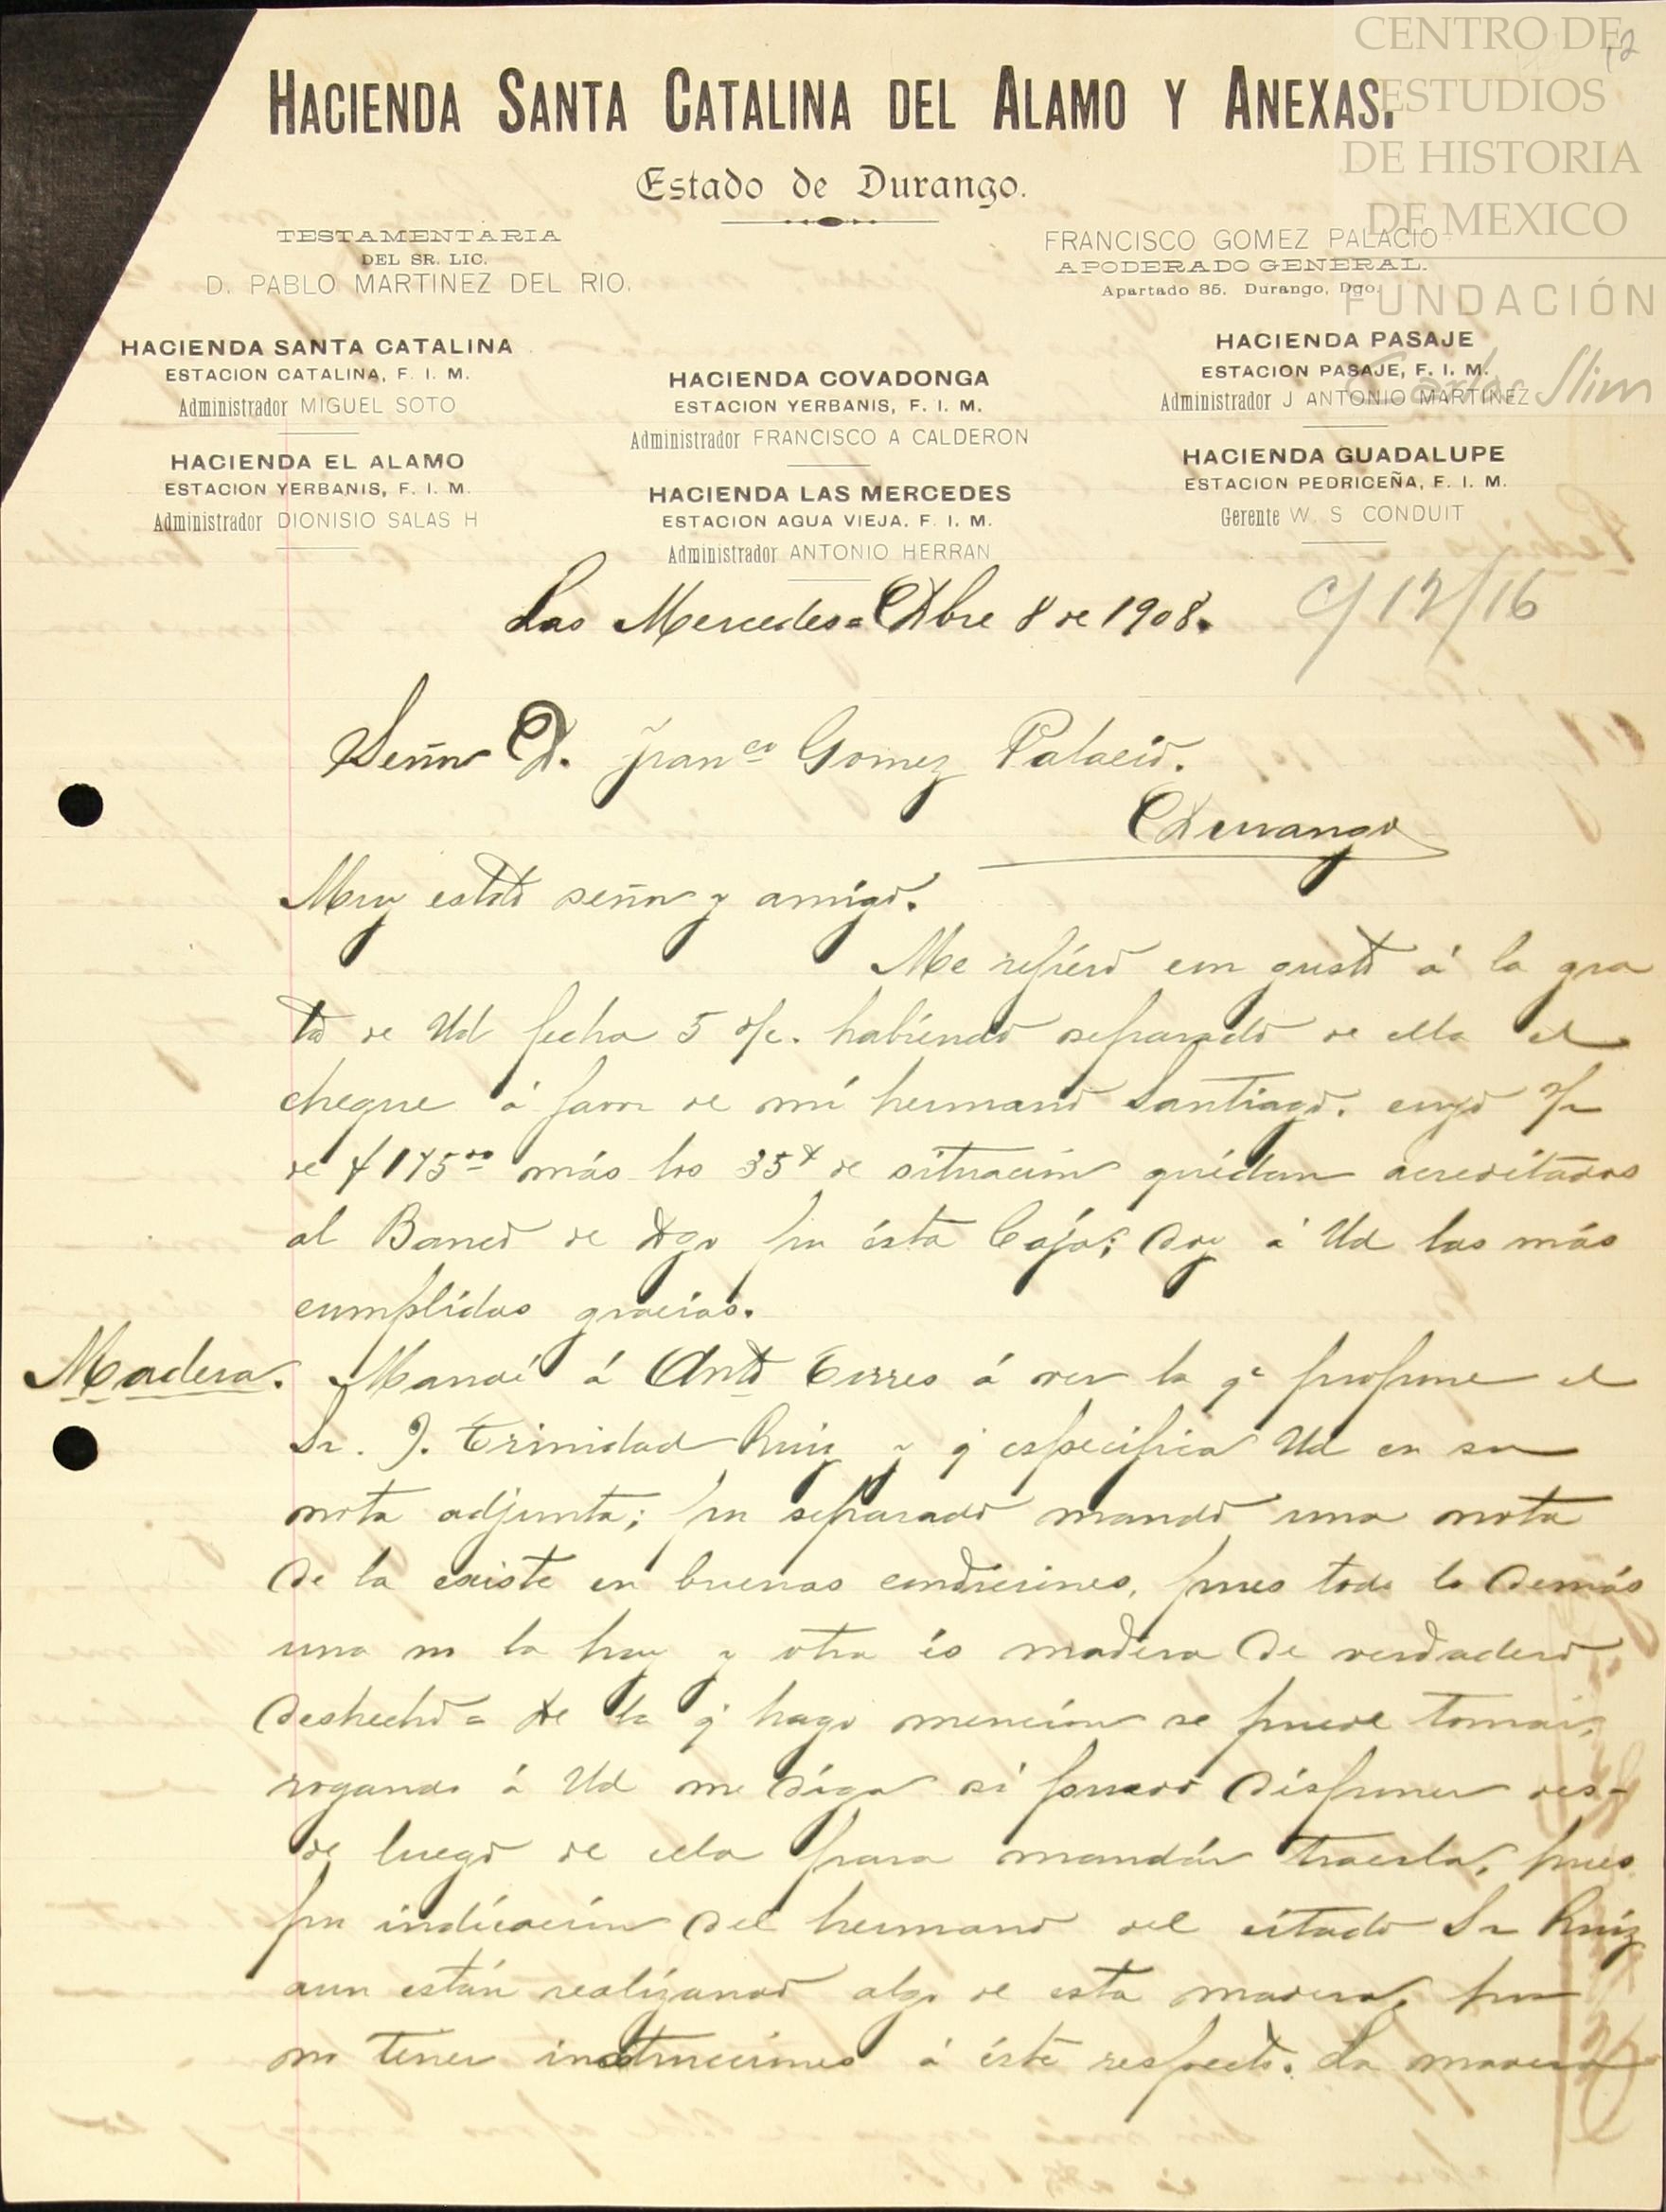 CENTRO DE
ESTUDIOS
DE HISTORIA
DE MEXICO
FUNDACIÓN
Carlos Slim
12
HACIENDA SANTA CATALINA DEL ALAMO Y ANEXAS.
Estado de Durango.
TESTAMENTARIA
DEL SR. LIC.
D. PABLO MARTINEZ DEL RIO.
FRANCISCO GOMEZ PALACIO
APODERADO GENERAL.
Apartado 85. Durango, Dgo.
HACIENDA SANTA CATALINA
ESTACION CATALINA, F. I. M.
Administrador MIGUEL SOTO
HACIENDA EL ALAMO
ESTACION YERBANIS, F. I. M.
Administrador DIONISIO SALAS H
HACIENDA COVADONGA
ESTACION YERBANIS, F. I. M.
Administrador FRANCISCO A CALDERON
HACIENDA LAS MERCEDES
ESTACION AGUA VIEJA. F. I. M.
Administrador ANTONIO HERRAN
HACIENDA PASAJE
ESTACION PASAJE, F. I. M.
Administrador J ANTONIO MARTINEZ
HACIENDA GUADALUPE
ESTACION PEDRICEÑA, F. I. M.
Gerente W. S CONDUIT
Las Mercedes = Dbre 8 de 1908.
c/ 12/16
Señor D. Franco Gomez Palacio.
Durango
Muy estdo señor y amigo.
Me refiero con gusto á la gra
ta de Ud fecha 5 d/c. habiendo separado de ella el
cheque á favor de mi hermano Santiago. cuyo v/r
de $175.00 más los 35¢ de situación quedan acreditados
al Banco de Dgo por ésta Caja; doy á Ud las más
cumplidas gracias.
Madera. Mandé á Anto Torres á ver la qe propone el
Sr. J. Trinidad Ruiz y q especifica Ud en su
nota adjunta; por separado mando una nota
de la existe en buenas condiciones, pues toda lo demás
una no la hay y otra és madera de verdadero
deshecho = De la q hago mención se puede tomar,
rogando á Ud me diga si puedo disponer des-
de luego de ella para mandár traerla, pues
por indicación del hermano del citado Sr Ruiz
aun están realizando algo de esta madera, por
no tener instrucciones á éste respecto. La madera